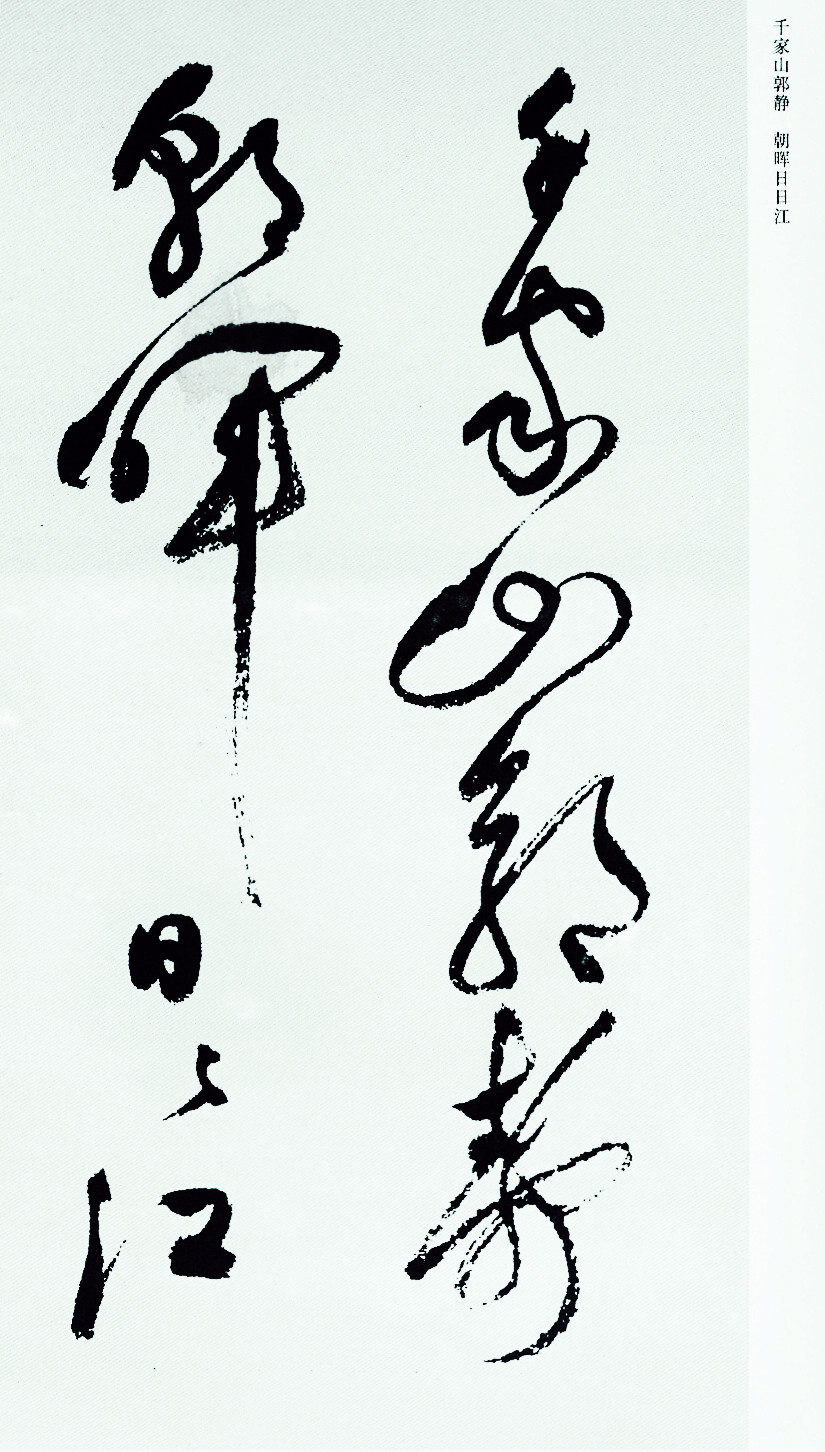 千家山郭静　朝晖日日江
千家山郭静
朝晖日〻江